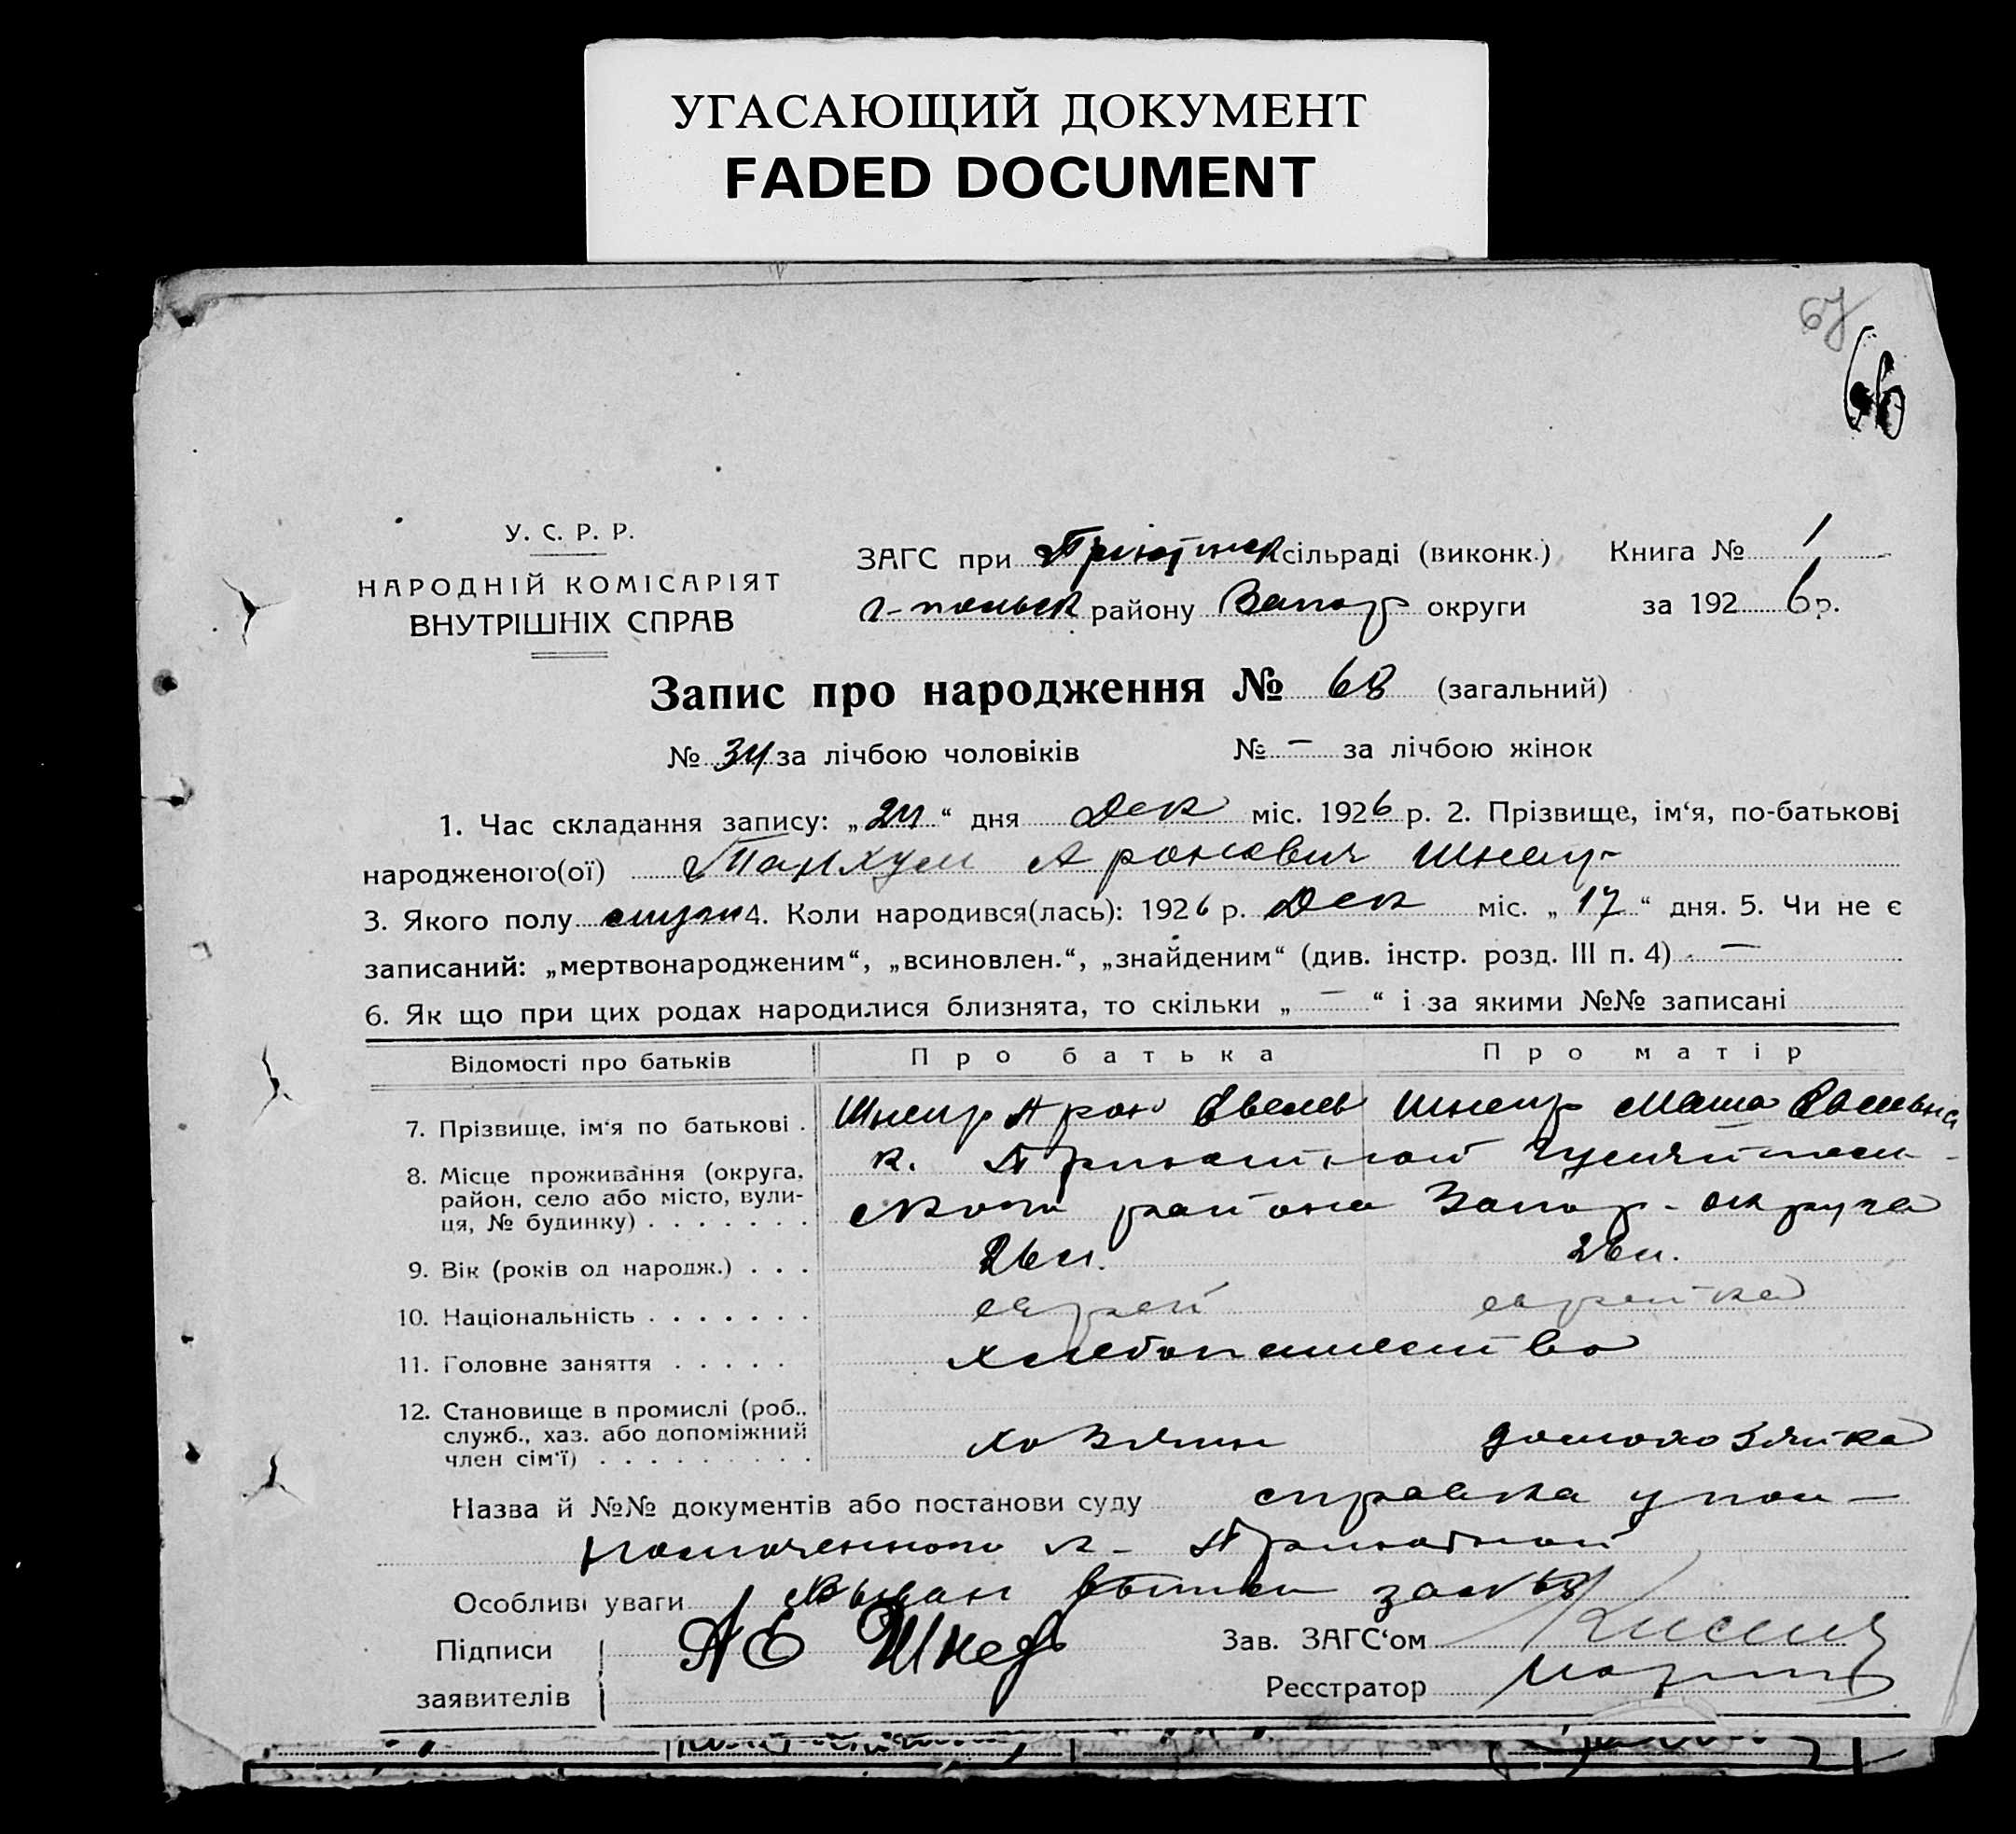 УГАСАЮЩИЙ ДОКУМЕНТ
FADED DOCUMENT
67
66
У. С. Р. Р.
НАРОДНІЙ КОМІСАРІЯТ
ВНУТРІШНІХ СПРАВ
ЗАГС при Приютнск сільраді (виконк.) Книга № 1
г-польск району Запор округи за 1926 р.
Запис про народження № 68 (загальний)
№ 34 за лічбою чоловіків № — за лічбою жінок
1. Час складання запису: „24“ дня Дек міс. 1926 р. 2. Прізвище, ім‘я, по-батькові
народженого(ої) Танхум Аронович Шнеур
3. Якого полу 4. Коли народився(лась): 1926 р. Дек міс. „17“ дня. 5. Чи не є
записаний: „мертвонародженим“, „всиновлен.“, „знайденим“ (див. інстр. розд. III п. 4) —
6. Як що при цих родах народилися близнята, то скільки „—“ і за якими №№ записані
Відомості про батьків Про батька Про матір
7. Прізвище, ім‘я по батькові . Шнеур Арон Шнеур Маша
8. Місце проживання (округа, район, село або місто, вули- ця, № будинку) . . . . . . . к. Приютной
района Запор. округа
9. Вік (років од народж.) . . . 26 л. 26 л.
10. Національність . . . . . . . еврей еврейка
11. Головне заняття . . . . . хлебопашество
12. Становище в промислі (роб., служб., хаз. або допоміжний член сім‘ї) . . . . . . . . . хозяин домохозяйка
Назва й №№ документів або постанови суду справка упол-
номоченного к- Приютной
Особливі уваги за № 68
Підписи заявителів АЕ Шнеер
Зав. ЗАГС‘ом
Реєстратор